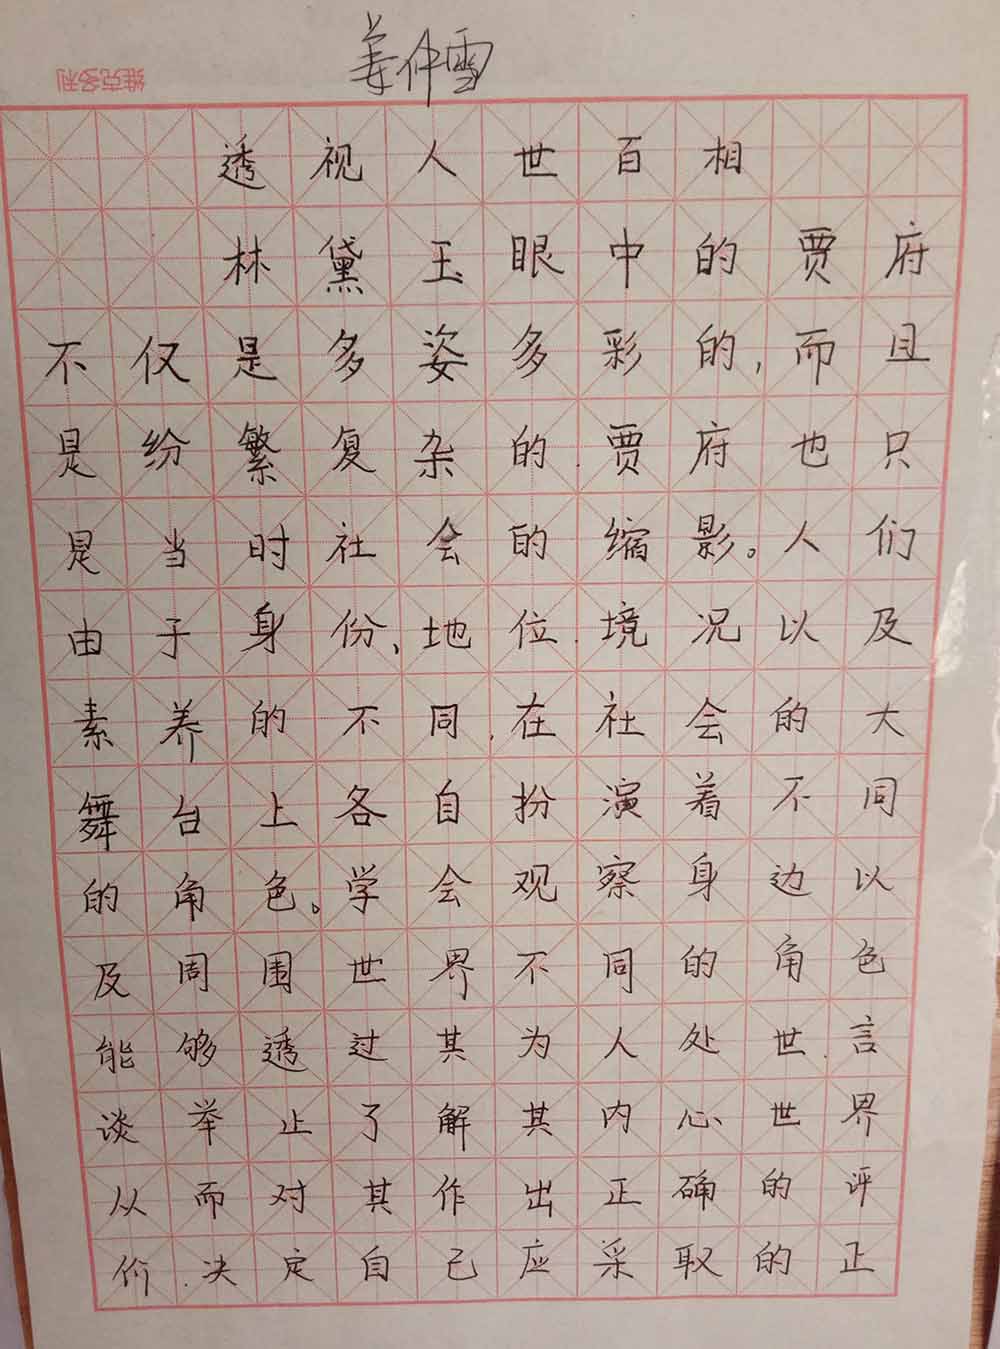 姜仲雪
维克多利
透视人世百相
林黛玉眼中的贾府
不仅是多姿多彩的,而且
是纷繁复杂的.贾府也只
是当时社会的缩影。人们
由于身份、地位.境况以及
素养的不同,在社会的大
舞台上各自扮演着不同
的角色。学会观察身边以
及周围世界不同的角色
能够透过其为人处世.言
谈举止了解其内心世界
从而对其作出正确的评
价.决定自己应采取的正